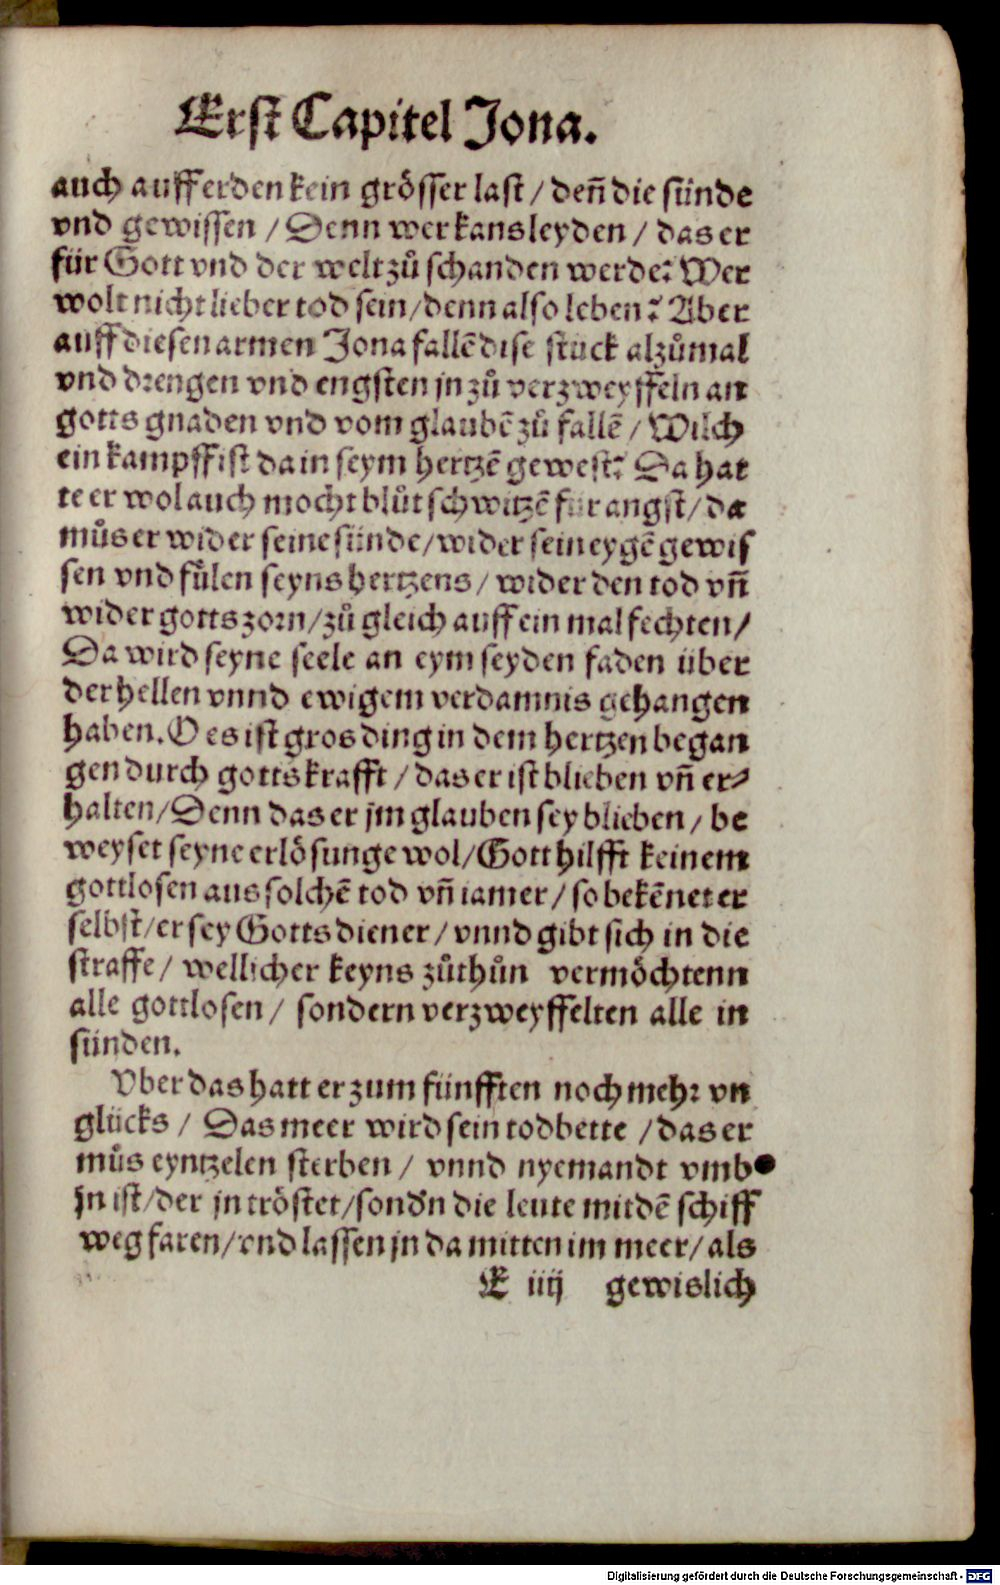 Erst Capitel Jona.
auch auff erden kein grösser last / deñ die sünde
vnd gewissen / Denn wer kans leyden / das er
für Gott vnd der welt zů schanden werde? Wer
wolt nicht lieber tod sein / denn also leben? Aber
auff diesen armen Jona fallē dise stück alzůmal
vnd drengen vnd engsten jn zů verzweyffeln an
gotts gnaden vnd vom glaubē zů fallē / Wilch
ein kampff ist da in seym hertzē gewest? Da hat
te er wol auch mocht blůt schwitzē für angst / da
můs er wider seine sünde / wider sein eygē gewis
sen vnd fůlen seyns hertzens / wider den tod vñ
wider gotts zorn / zů gleich auff ein mal fechten /
Da wird seyne seele an eym seyden faden über
der hellen vnnd ewigem verdamnis gehangen
haben. O es ist gros ding in dem hertzen began
gen durch gotts krafft / das er ist blieben vñ er⸗
halten / Denn das er jm glauben sey blieben / be
weyset seyne erlösunge wol / Gott hilfft keinem
gottlosen aus solchē tod vñ iamer / so bekēnet er
selbst / er sey Gotts diener / vnnd gibt sich in die
straffe / wellicher keyns zůthůn vermöchtenn
alle gottlosen / sondern verzweyffelten alle in
sünden.
Vber das hatt er zum fünfften noch mehr vn
glücks / Das meer wird sein todbette / das er
můs eyntzelen sterben / vnnd nyemandt vmb
jn ist / der jn tröstet / sond'n die leute mit dē schiff
weg faren / vnd lassen jn da mitten im meer / als
E iiij gewislich
Digitalisierung gefördert durch die Deutsche Forschungsgemeinschaft - DFG